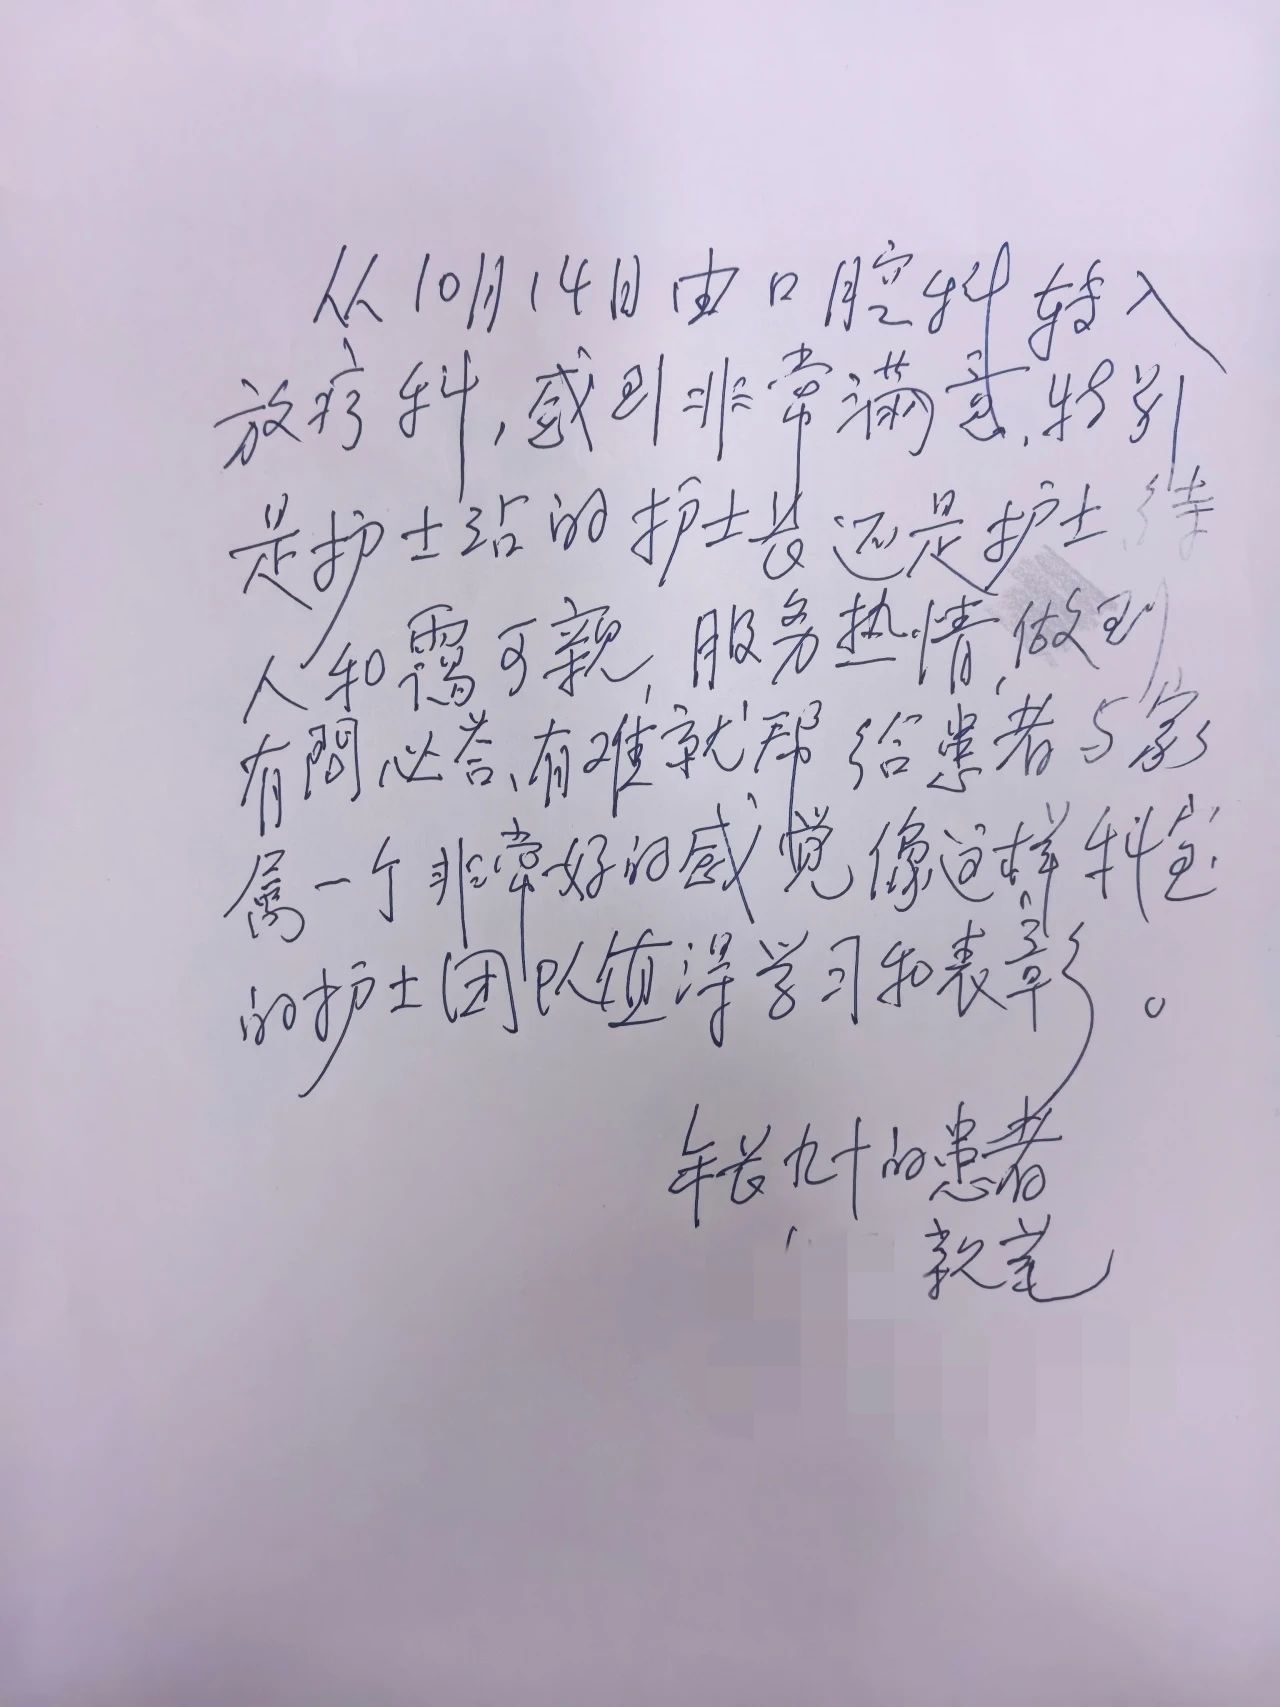 从10月14日由口腔科转入
放疗科,感到非常满意,特别
是护士站的护士长还是护士待
人和霭可亲,服务热情,做到
有問必答、有难就帮给患者与家
属一个非常好的感觉像这样科室
的护士团队值得学习和表彰。
年长九十的患者
亲笔